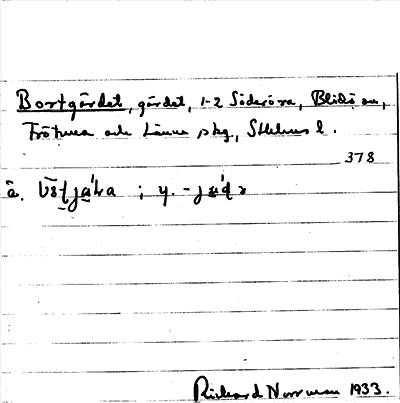 Bortgärdet, gärdet, 1-2 Söderöra, Blidö sn,
Frötuna och Länna skg, Sthlms l.
378
ä. ; y.
Rickard Norrman 1933.